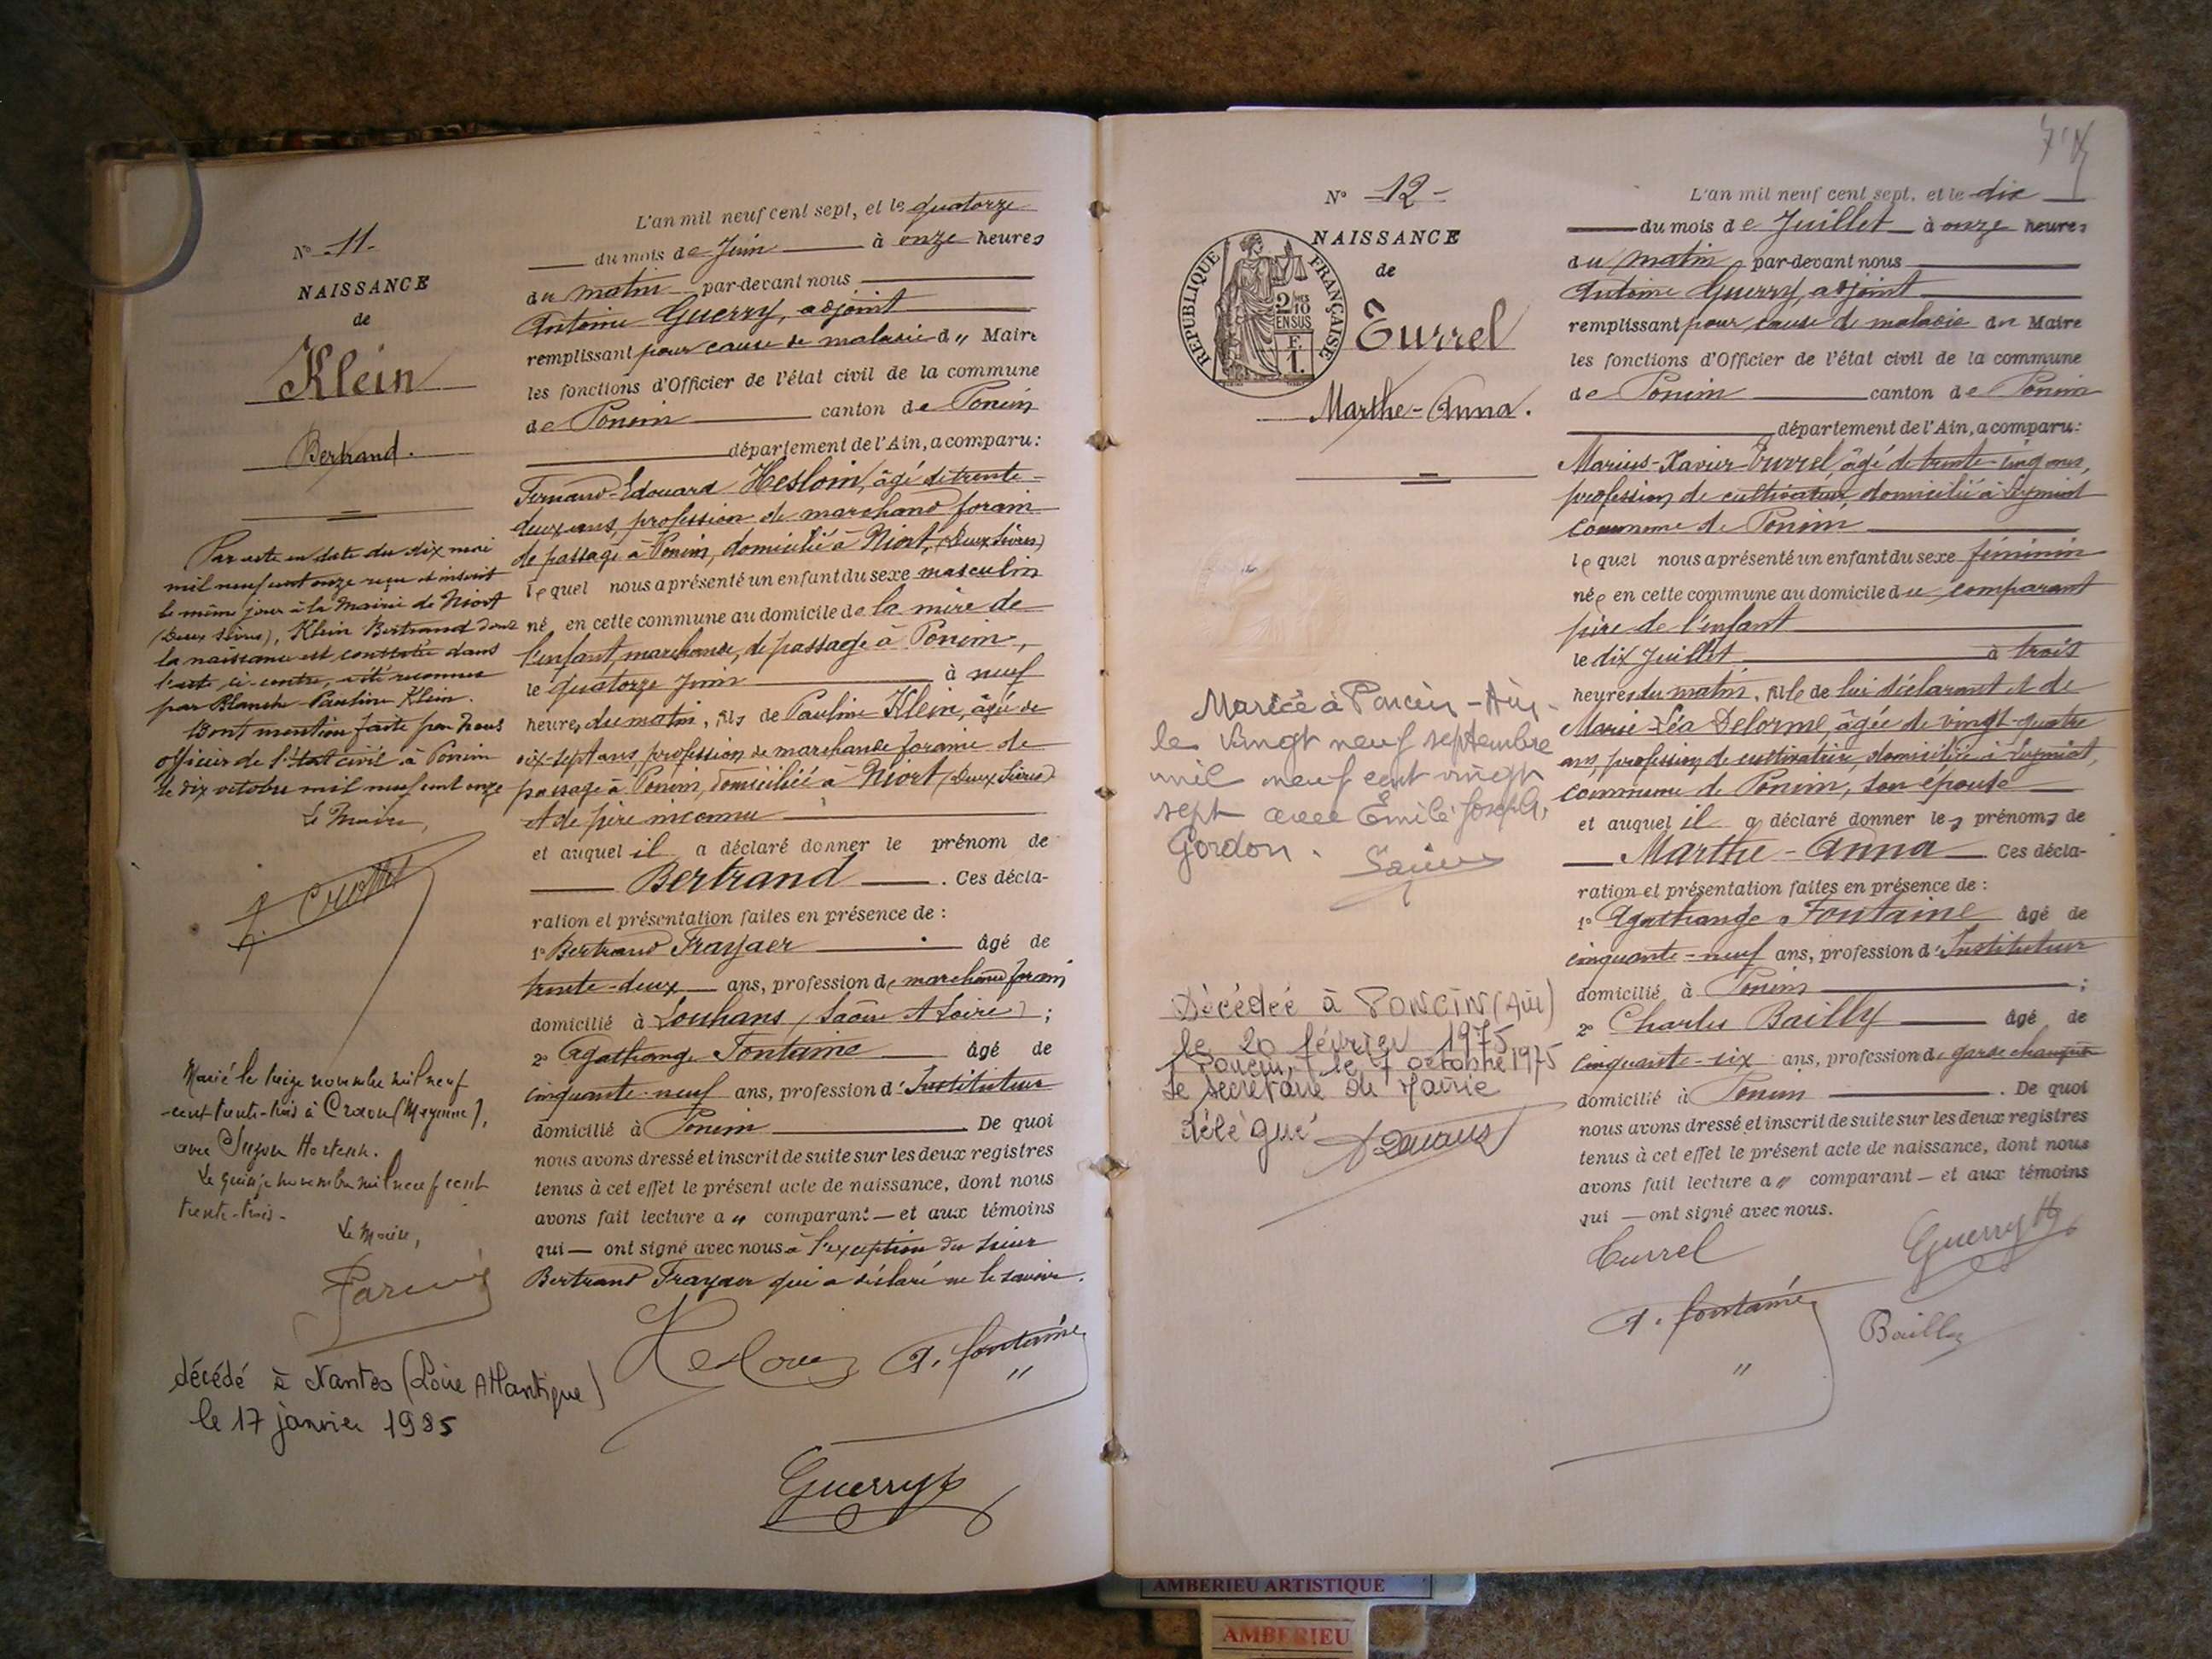 N° 11-
NAISSANCE
de
Klein
Bertrand.
Par acte en date du dix mai
mil neuf cent onze reçu et inscrit
le même jour à la Mairie de Niort
(Deux Sèvres), Klein Bertrand dont
la naissance est constatée dans
l'acte ci-contre, a été reconnu
par Blanche Pauline Klein.
Dont mention faite par Nous
officier de l'état civil à Poncin
le dix octobre mil neuf cent onze
Le Maire,
Marié le treize novembre mil neuf
cent trente-trois à Craon (Mayenne),
avec
Le quinze novembre mil neuf cent
trente-trois.
Le Maire,
décédé à Nantes (Loire Atlantique)
le 17 janvier 1985
L'an mil neuf cent sept, et le quatorze
du mois de Juin à onze heures
du matin par-devant nous
Antoine Guerry, adjoint
remplissant pour cause de maladie d" Maire
les fonctions d'Officier de l'état civil de la commune
de Poncin canton de Poncin
département de l'Ain, a comparu:
Fernand-Edouard Hesloin, âgé de trente-
deux ans, profession de marchand forain
de passage à Poncin, domicilié à Niort, (Deux Sèvres)
lequel nous a présenté un enfant du sexe masculin
né en cette commune au domicile de la mère de
l'enfant, marchande, de passage à Poncin,
le quatorze Juin à neuf
heures du matin, fils de Pauline Klein, âgée de
dix-sept ans, profession de marchande foraine de
passage à Poncin, domiciliée à Niort (Deux Sèvres)
et de père inconnu
et auquel il a déclaré donner le prénom de
Bertrand. Ces décla-
ration et présentation faites en présence de :
1° Bertrand Frayaer âgé de
trente-deux ans, profession de marchand forain
domicilié à Louhans (Saône et Loire) ;
2° Agathange Fontaine âgé de
cinquante-neuf ans, profession d'Instituteur
domicilié à Poncin. De quoi
nous avons dressé et inscrit de suite sur les deux registres
tenus à cet effet le présent acte de naissance, dont nous
avons fait lecture a" comparant — et aux témoins
qui — ont signé avec nous à l'exception du sieur
Bertrand Frayaer qui a déclaré ne le savoir.
A. fontaine
Guerry
N° 12-
NAISSANCE
de
RÉPUBLIQUE FRANÇAISE
2/10 EN SUS
F. 1.
Turrel
Marthe-Anna.
Mariée à Poncin - Ain -
le vingt neuf septembre
mil neuf cent vingt
sept avec Emile Joseph
Gordon.
Décédée à PONCIN (Ain)
le 20 février 1975
Poncin, le 7 octobre 1975
Le secrétaire de Mairie
délégué
L'an mil neuf cent sept, et le dix
du mois de Juillet à onze heures
du matin par-devant nous
Antoine Guerry, adjoint
remplissant pour cause de maladie du Maire
les fonctions d'Officier de l'état civil de la commune
de Poncin canton de Poncin
département de l'Ain, a comparu:
Marius-Xavier Turrel âgé de trente-cinq ans,
profession de cultivateur domicilié à Leymiat
commune de Poncin
lequel nous a présenté un enfant du sexe féminin
née en cette commune au domicile du comparant
père de l'enfant
le dix Juillet à trois
heures du matin, fille de lui déclarant et de
Marie-Léa Delorme, âgée de vingt-quatre
ans, profession de cultivatrice, domiciliée à Leymiat,
commune de Poncin, son épouse
et auquel il a déclaré donner les prénoms de
Marthe-Anna Ces décla-
ration et présentation faites en présence de :
1° Agathange Fontaine âgé de
cinquante-neuf ans, profession d'Instituteur
domicilié à Poncin ;
2° Charles Bailly âgé de
cinquante-six ans, profession de garde champêtre
domicilié à Poncin. De quoi
nous avons dressé et inscrit de suite sur les deux registres
tenus à cet effet le présent acte de naissance, dont nous
avons fait lecture a" comparant — et aux témoins
qui — ont signé avec nous.
Turrel
Guerry
A. fontaine
Bailly
AMBERIEU ARTISTIQUE
AMBERIEU